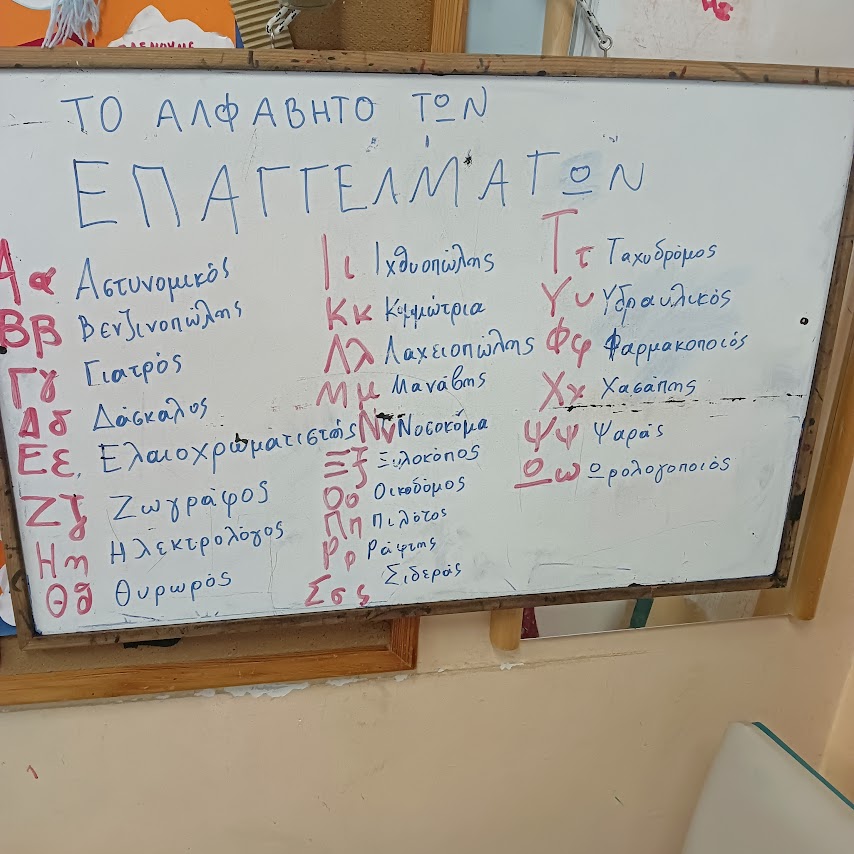 ΤΟ ΑΛΦΑΒΗΤΟ ΤΩΝ
ΕΠΑΓΓΕΛΜΑΤΩΝ
Αα Αστυνομικός
Ββ Βενζινοπώλης
Γγ Γιατρός
Δδ Δάσκαλος
Εε Ελαιοχρωματιστής
Ζζ Ζωγράφος
Ηη Ηλεκτρολόγος
Θθ Θυρωρός
Ιι Ιχθυοπώλης
Κκ Κομμώτρια
Λλ Λαχειοπώλης
Μμ Μανάβης
Νν Νοσοκόμα
Ξξ Ξυλοκόπος
Οο Οικοδόμος
Ππ Πιλότος
Ρρ Ράφτης
Σσς Σιδεράς
Ττ Ταχυδρόμος
Υυ Υδραυλικός
Φφ Φαρμακοποιός
Χχ Χασάπης
Ψψ Ψαράς
Ωω Ωρολογοποιός